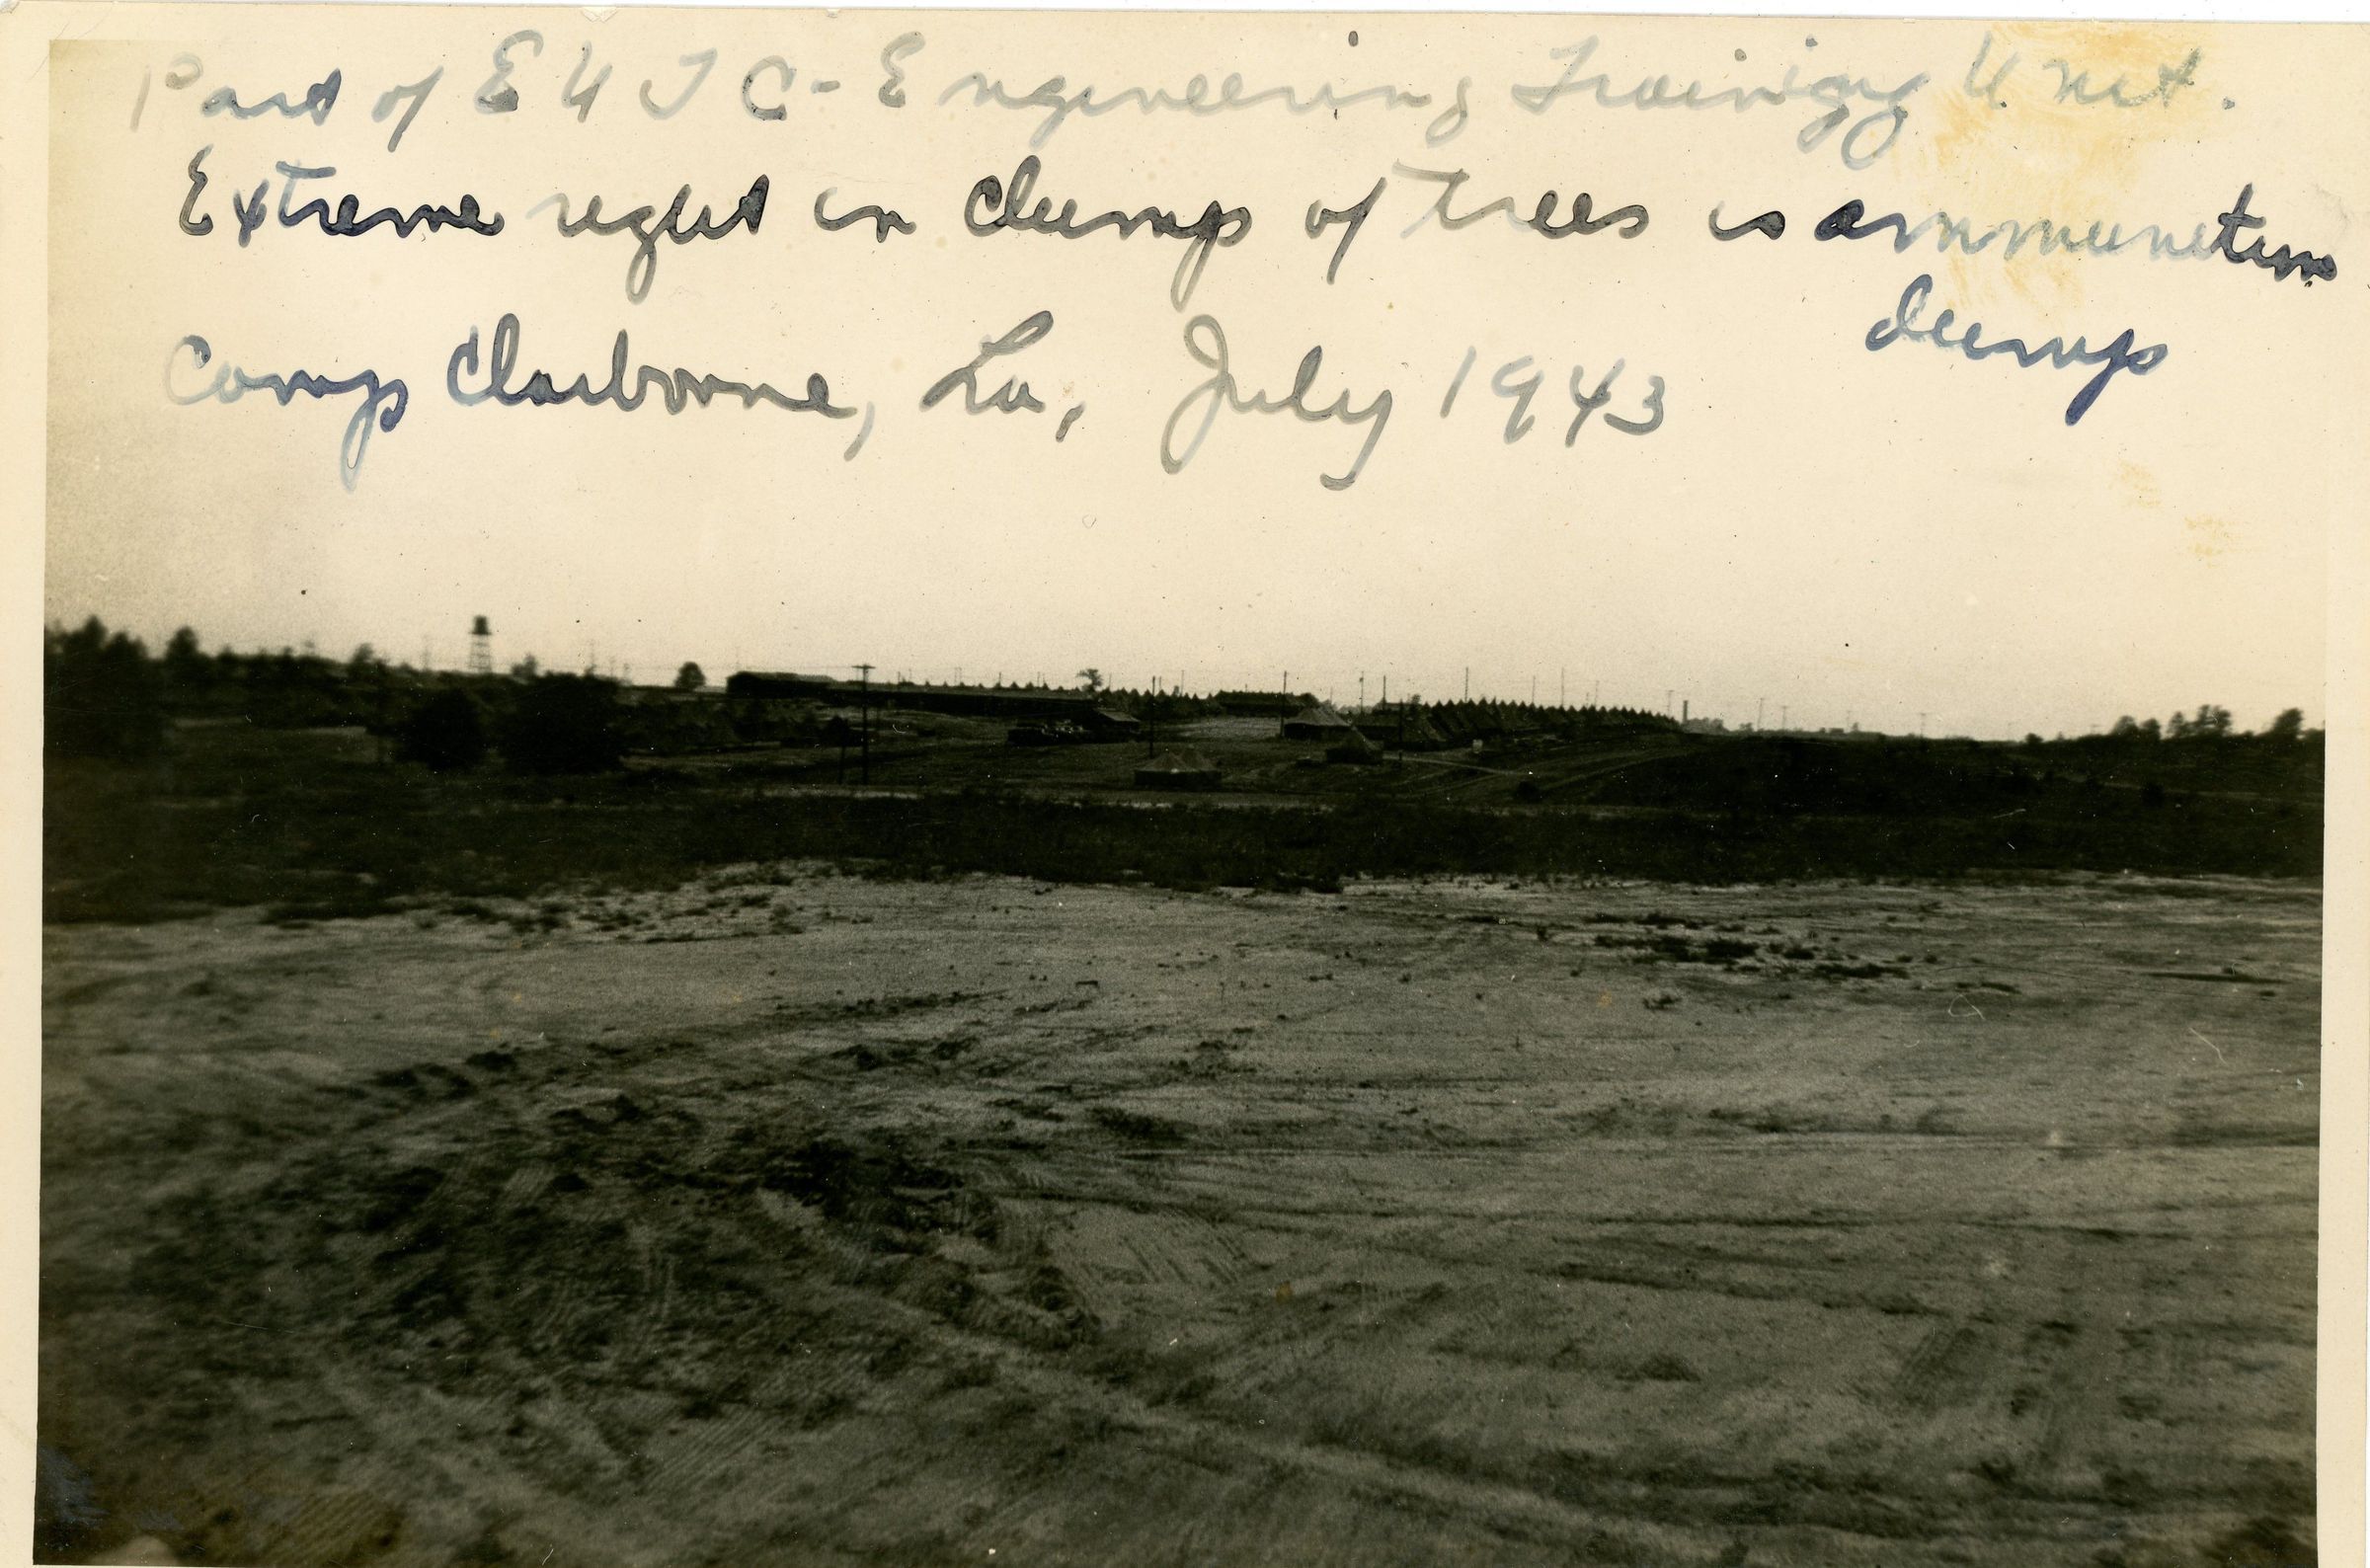 Part of EUTC - Engineering Training Unit.
Extreme right in clump of trees is ammunition
dump
Camp Claiborne, La, July 1943